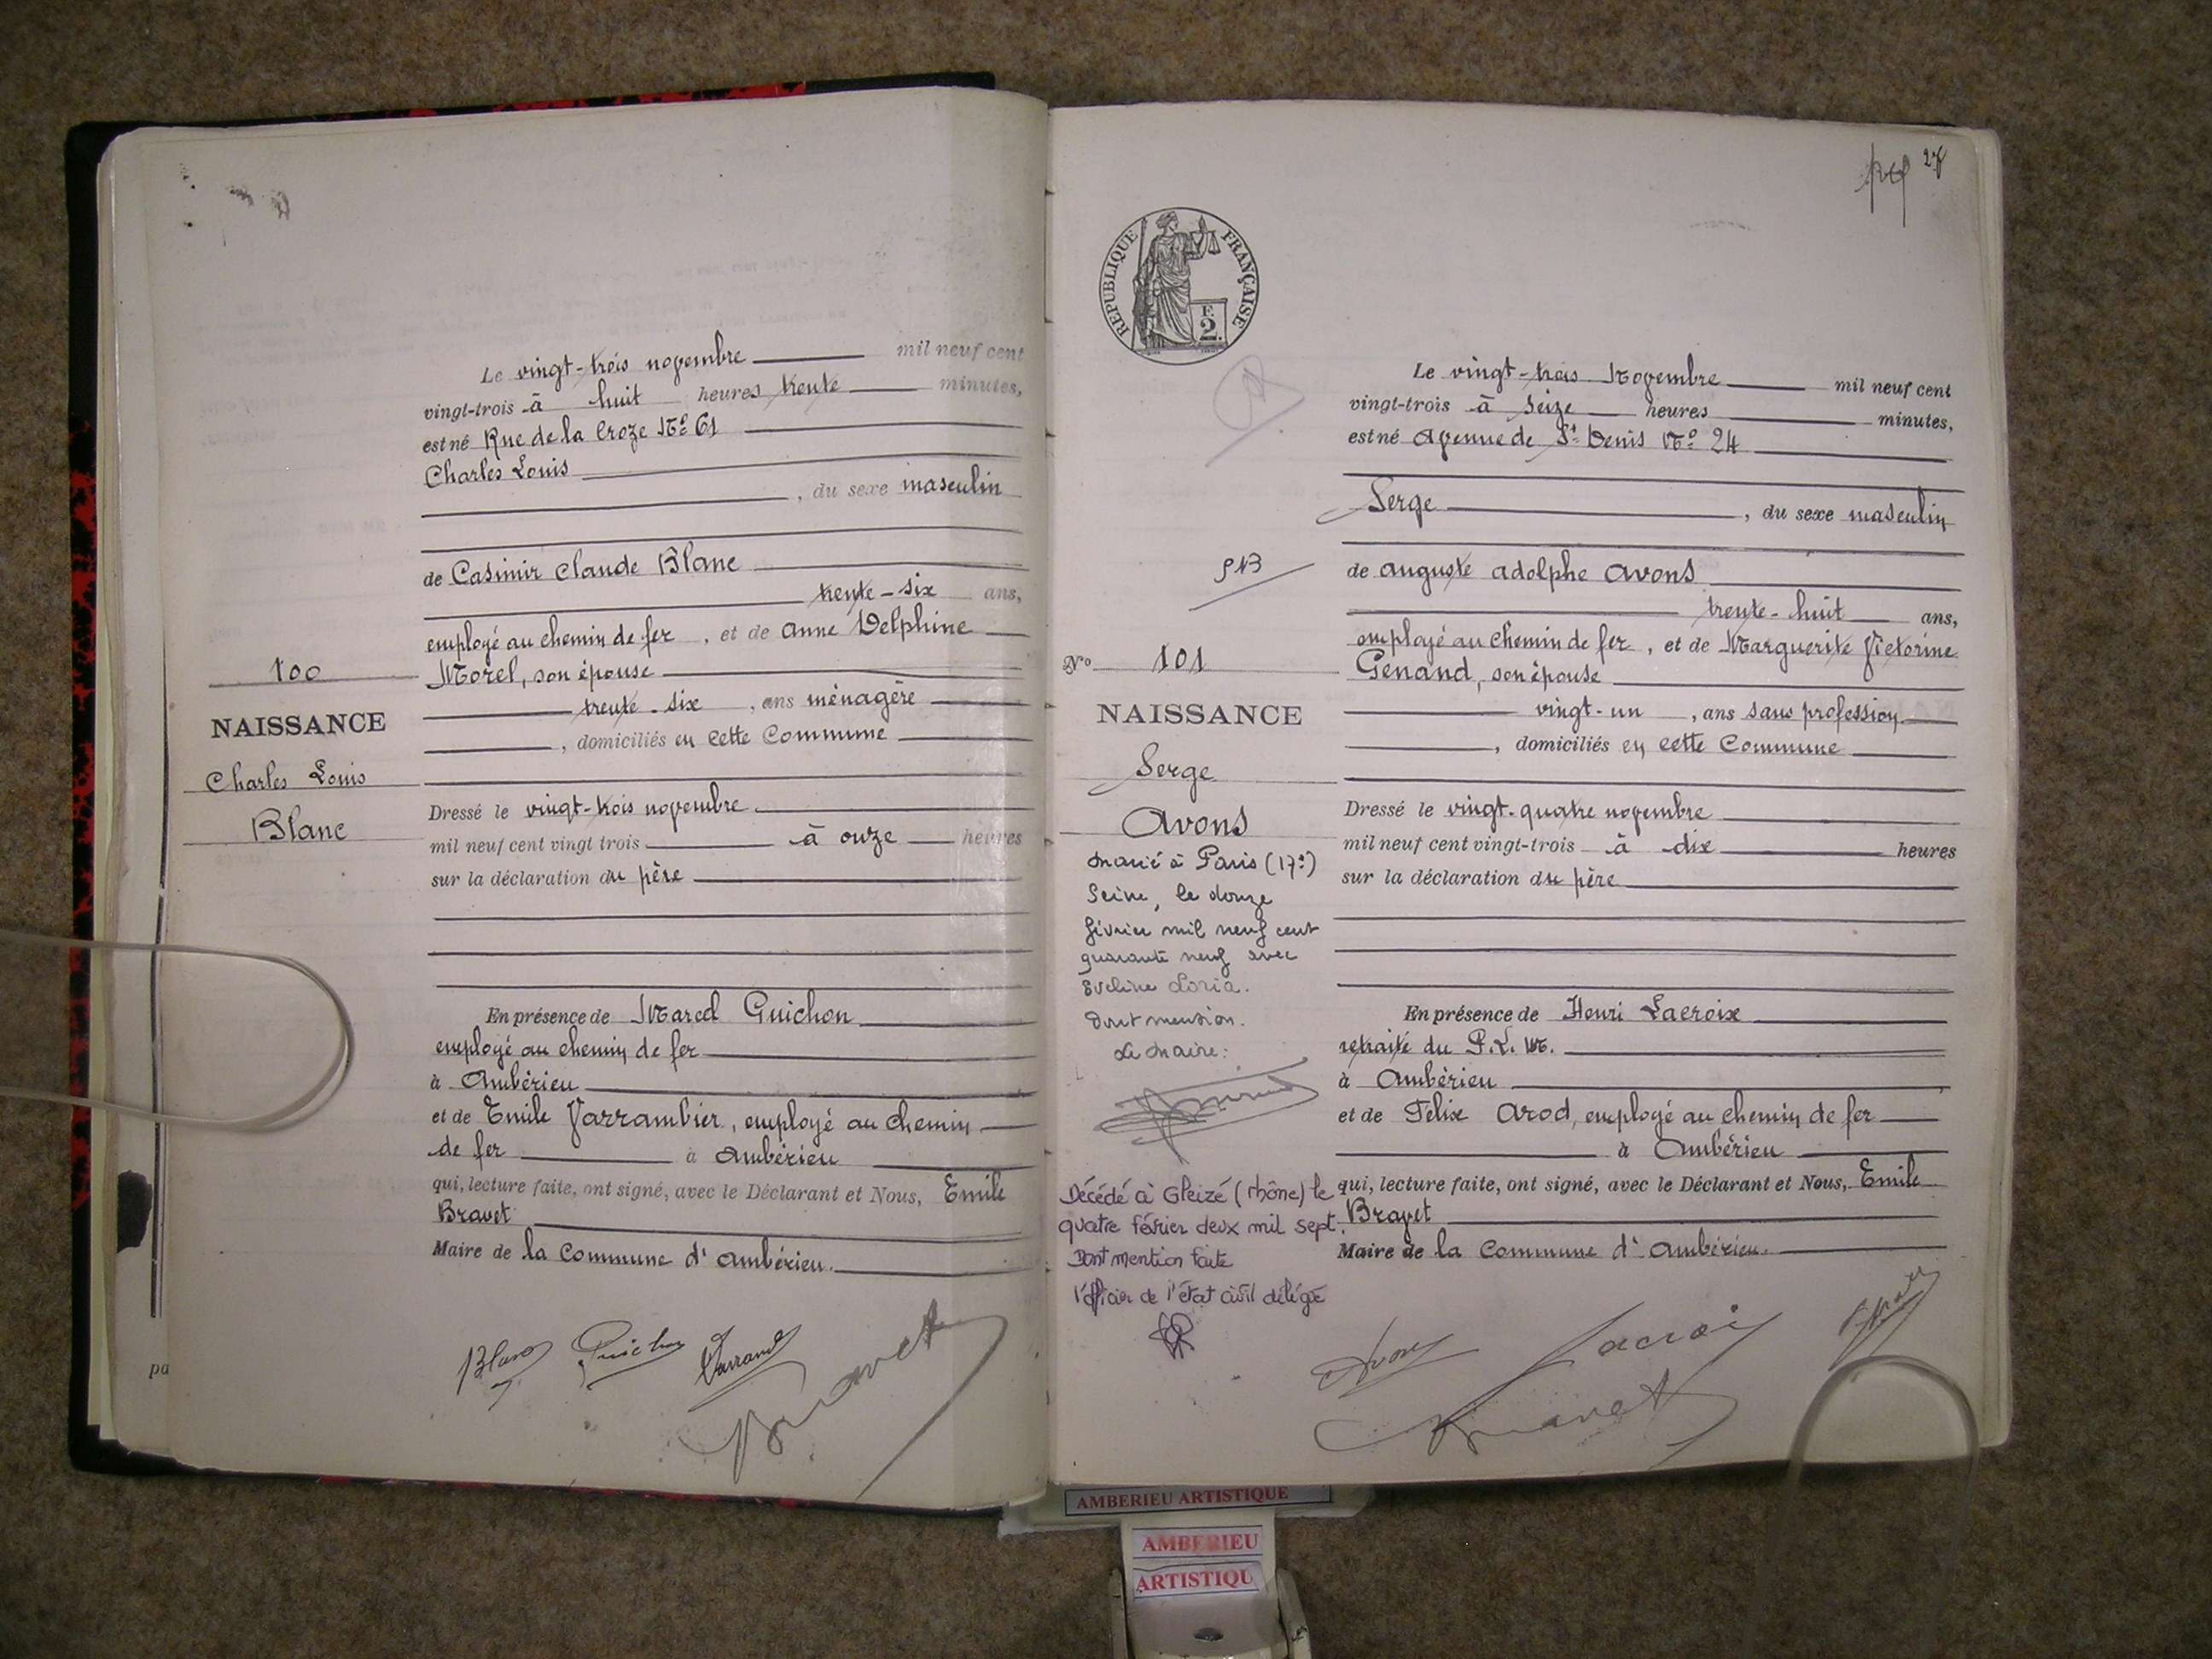 Le vingt-trois novembre mil neuf cent
vingt-trois à huit heures trente minutes,
est né Rue de la Croze No 61
Charles Louis
, du sexe masculin
de Casimir Claude Blanc
trente-six ans,
employé au chemin de fer, et de Anne Delphine
Morel, son épouse
trente-six, ans ménagère
, domiciliés en cette Commune
100
NAISSANCE
Charles Louis
Blanc
Dressé le vingt-trois novembre
mil neuf cent vingt trois à onze heures
sur la déclaration du père
En présence de Marcel Guichon
employé au chemin de fer
à Ambérieu
et de Emile Varrambier, employé au chemin
de fer à Ambérieu
qui, lecture faite, ont signé, avec le Déclarant et Nous, Emile
Bravet
Maire de la Commune d'Ambérieu.
Blanc Guichon
Bravet
pa
27
RÉPUBLIQUE FRANÇAISE
F.
2.
Le vingt-trois Novembre mil neuf cent
vingt-trois à seize heures minutes,
est né avenue de St Denis No 24
Serge, du sexe masculin
de auguste adolphe avons
trente-huit ans,
employé au chemin de fer, et de Marguerite Victorine
Genand, son épouse
vingt-un, ans sans profession
, domiciliés en cette Commune
No 101
NAISSANCE
Serge
avons
Dressé le vingt-quatre novembre
mil neuf cent vingt-trois à dix heures
sur la déclaration du père
En présence de Henri Lacroix
retraité du P.L.M.
à Ambérieu
et de Félix Arod, employé au chemin de fer
à Ambérieu
qui, lecture faite, ont signé, avec le Déclarant et Nous, Emile
Bravet
Maire de la Commune d'Ambérieu.
marié à Paris (17e)
Seine, le douze
février mil neuf cent
quarante neuf avec
Eveline Loria.
Dont mention.
Le Maire:
Décédé à Gleizé (rhône) le
quatre février deux mil sept.
Dont mention faite
l'officier de l'état civil délégué
Avons Lacroix
Bravet
AMBERIEU ARTISTIQUE
AMBERIEU
ARTISTIQU